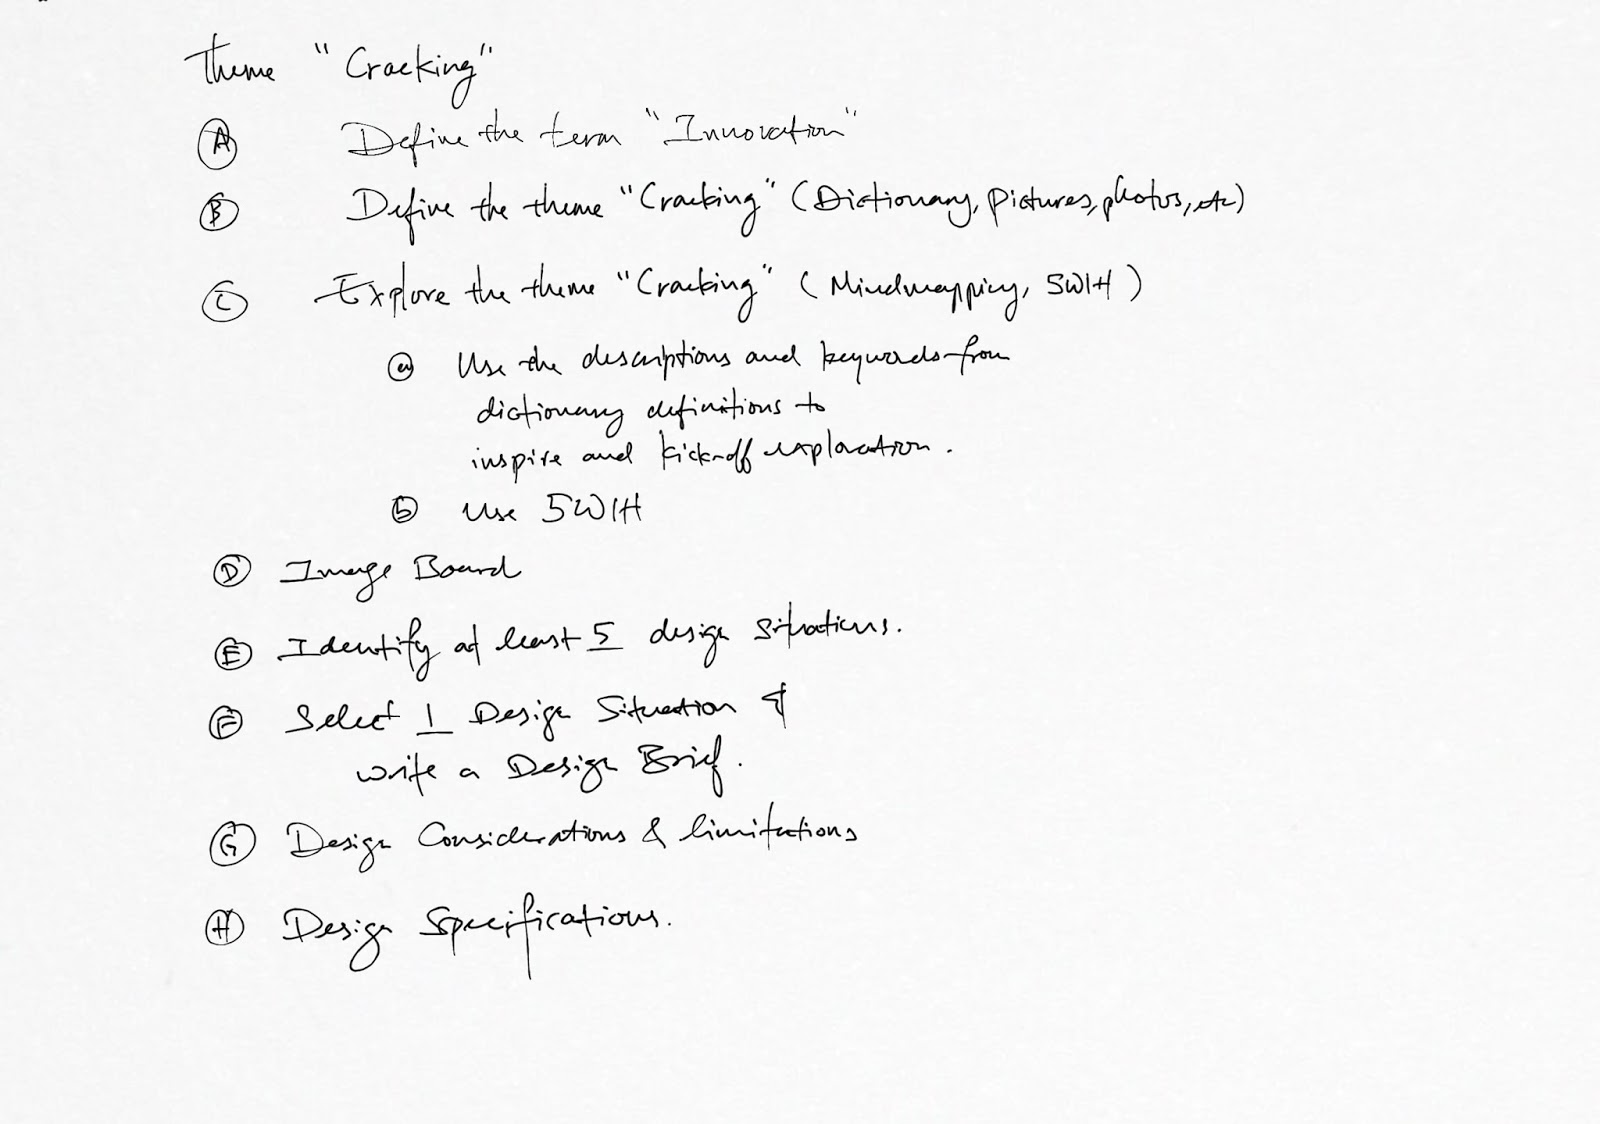 Theme "Cracking"
Ⓐ Define the term "Innovation"
Ⓑ Define the theme "Cracking" (Dictionary, Pictures, photos, etc)
Ⓒ Explore the theme "Cracking" (Mindmapping, 5W1H)
ⓐ Use the descriptions and keywords from
dictionary definitions to
inspire and kick-off exploration.
ⓑ Use 5W1H
Ⓓ Image Board
Ⓔ Identify at least 5 design situations.
Ⓕ Select 1 Design Situation &
write a Design Brief.
Ⓖ Design Considerations & limitations
Ⓗ Design Specifications.